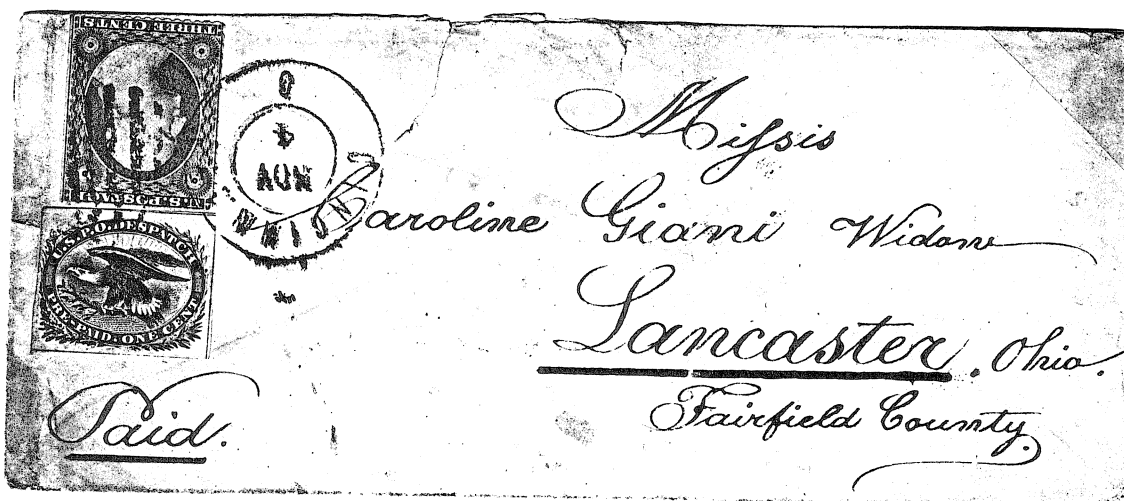 THREE CENTS
U.S. POSTAGE
NOV
4
U.S.P.O. DESPATCH
PRE-PAID. ONE CENT.
Miſsis
Caroline Giani Widow
Lancaster. Ohio.
Fairfield County
Paid.